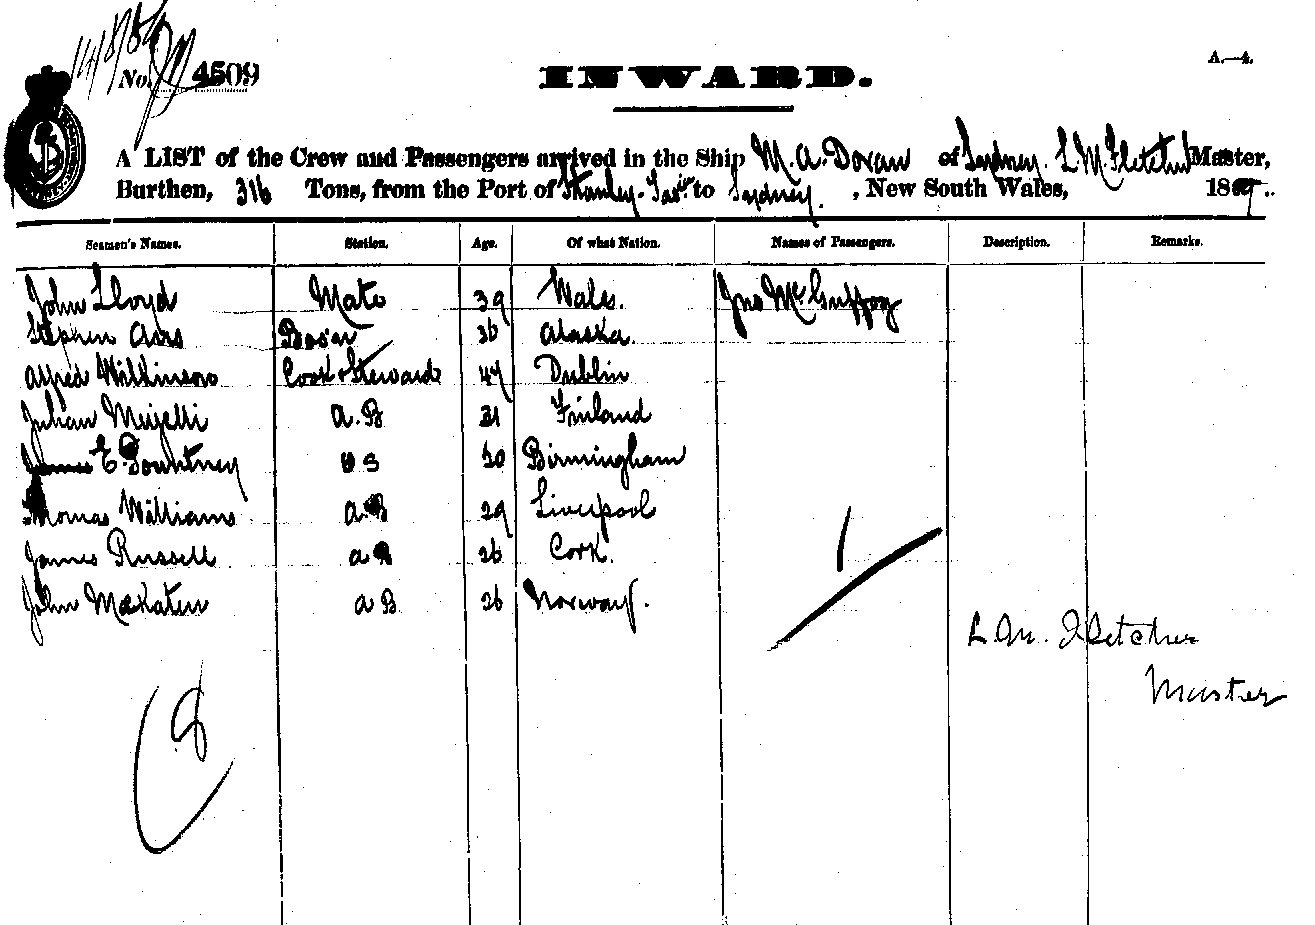 No. 4509
INWARD.
A.—4.
A LIST of the Crew and Passengers arrived in the Ship M. A. Doran of Sydney. L M Fletcher Master,
Burthen, 316 Tons, from the Port of Stanley. Tas to Sydney. , New South Wales, 18
Seamen's Names. Station. Age. Of what Nation. Names of Passengers. Description. Remarks.
John Lloyd Mate 39 Wales. Jno McGuffog
Stephen Bos'an 36 Alaska.
Alfred Wilkinson Cook & Steward 47 Dublin
Julian a.B 21 Finland
James E. Doughtney O S 20 Birmingham
Thomas Williams a B 29 Liverpool
James Russell a B 26 Cork.
John a B 26 Norway.
1
L. M. Fletcher
Master
8